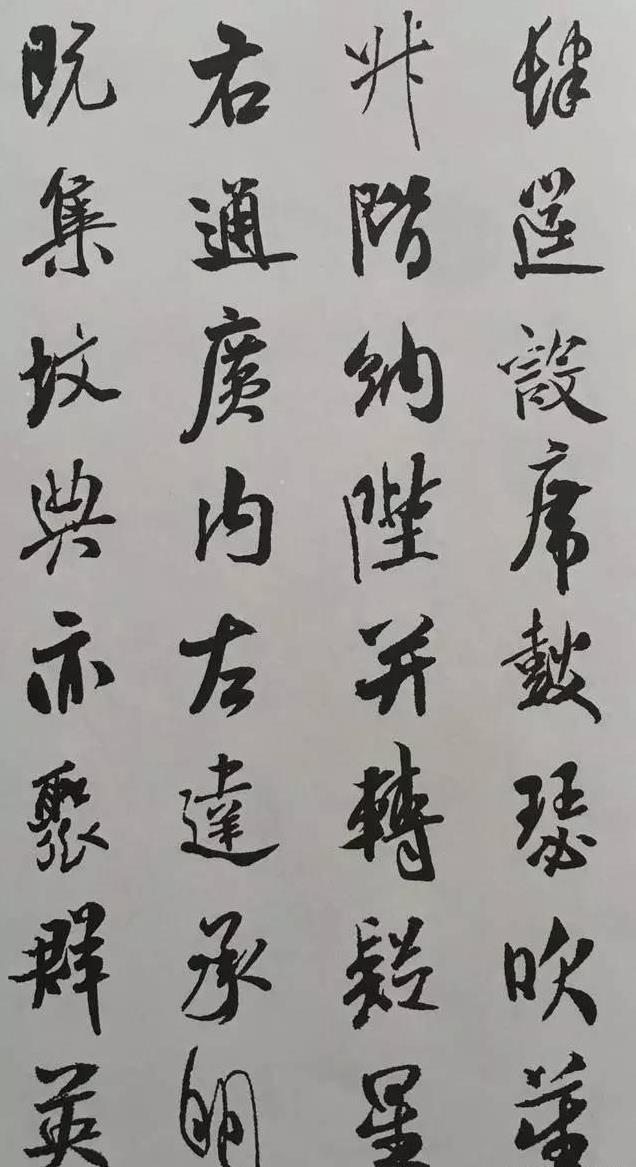 肆筵設席鼓瑟吹笙
升階納陛并轉疑星
右通廣内左達承明
既集坟典亦聚群英